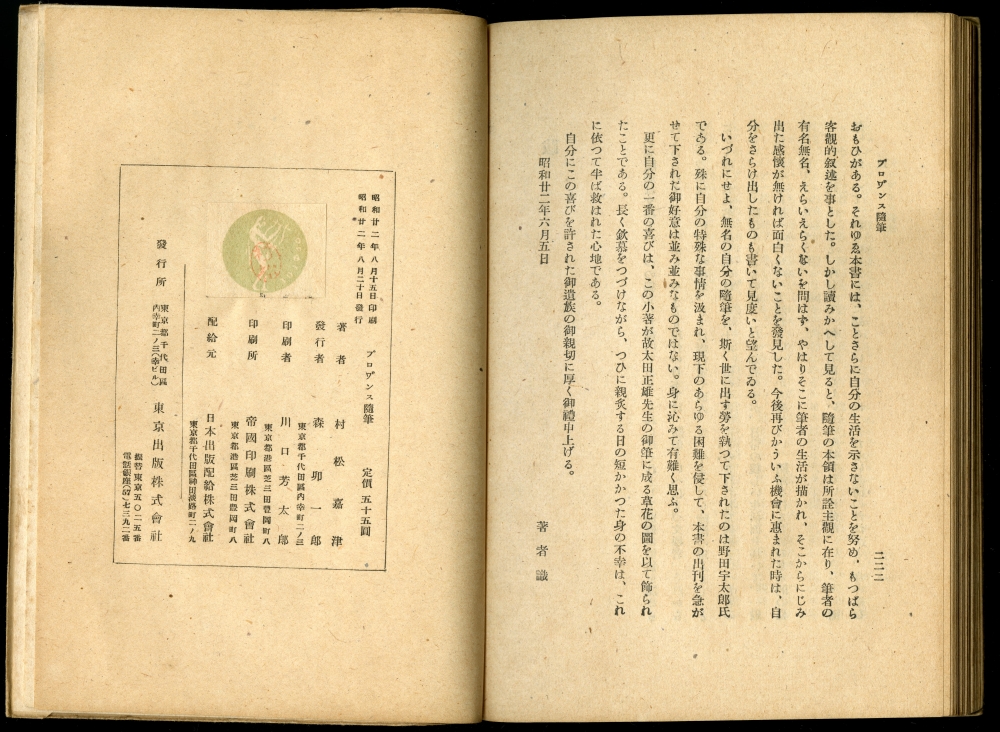 プロヷンス隨筆
二二二
おもひがある。それゆゑ本書には、ことさらに自分の生活を示さないことを努め、もつぱら
客觀的叙述を事とした。しかし讀みかへして見ると、隨筆の本領は所詮主觀に在り、筆者の
有名無名、えらいえらくないを問はず、やはりそこに筆者の生活が描かれ、そこからにじみ
出た感懷が無ければ面白くないことを發見した。今後再びかういふ機會に惠まれた時は、自
分をさらけ出したものも書いて見度いと望んでゐる。
いづれにせよ、無名の自分の隨筆を、斯く世に出す勞を執つて下されたのは野田宇太郎氏
である。殊に自分の特殊な事情を汲まれ、現下のあらゆる困難を侵して、本書の出刊を急が
せて下された御好意は並み並みなものではない。身に沁みて有難く思ふ。
更に自分の一番の喜びは、この小著が故太田正雄先生の御筆に成る草花の圖を以て飾られ
たことである。長く欽慕をつづけながら、つひに親炙する日の短かかつた身の不幸は、これ
に依つて半ば救はれた心地である。
自分にこの喜びを許された御遺族の御親切に厚く御禮申上げる。
昭和廿二年六月五日
著者識
昭和廿二年八月十五日印刷
昭和廿二年八月二十日發行
プロヷンス隨筆 定價五十五圓
著者 村松嘉津
東京都千代田區內幸町二ノ三
發行者 森卯一郎
東京都港區芝三田豊岡町八
印刷者 川口芳太郎
東京都港區芝三田豊岡町八
印刷所 帝國印刷株式會社
東京都千代田區神田淡路町二ノ九
配給元 日本出版配給株式會社
發行所 東京都千代田區內幸町二ノ三(幸ビル) 東京出版株式會社
振替東京五〇二一五番
電話銀座(57)七三九二番